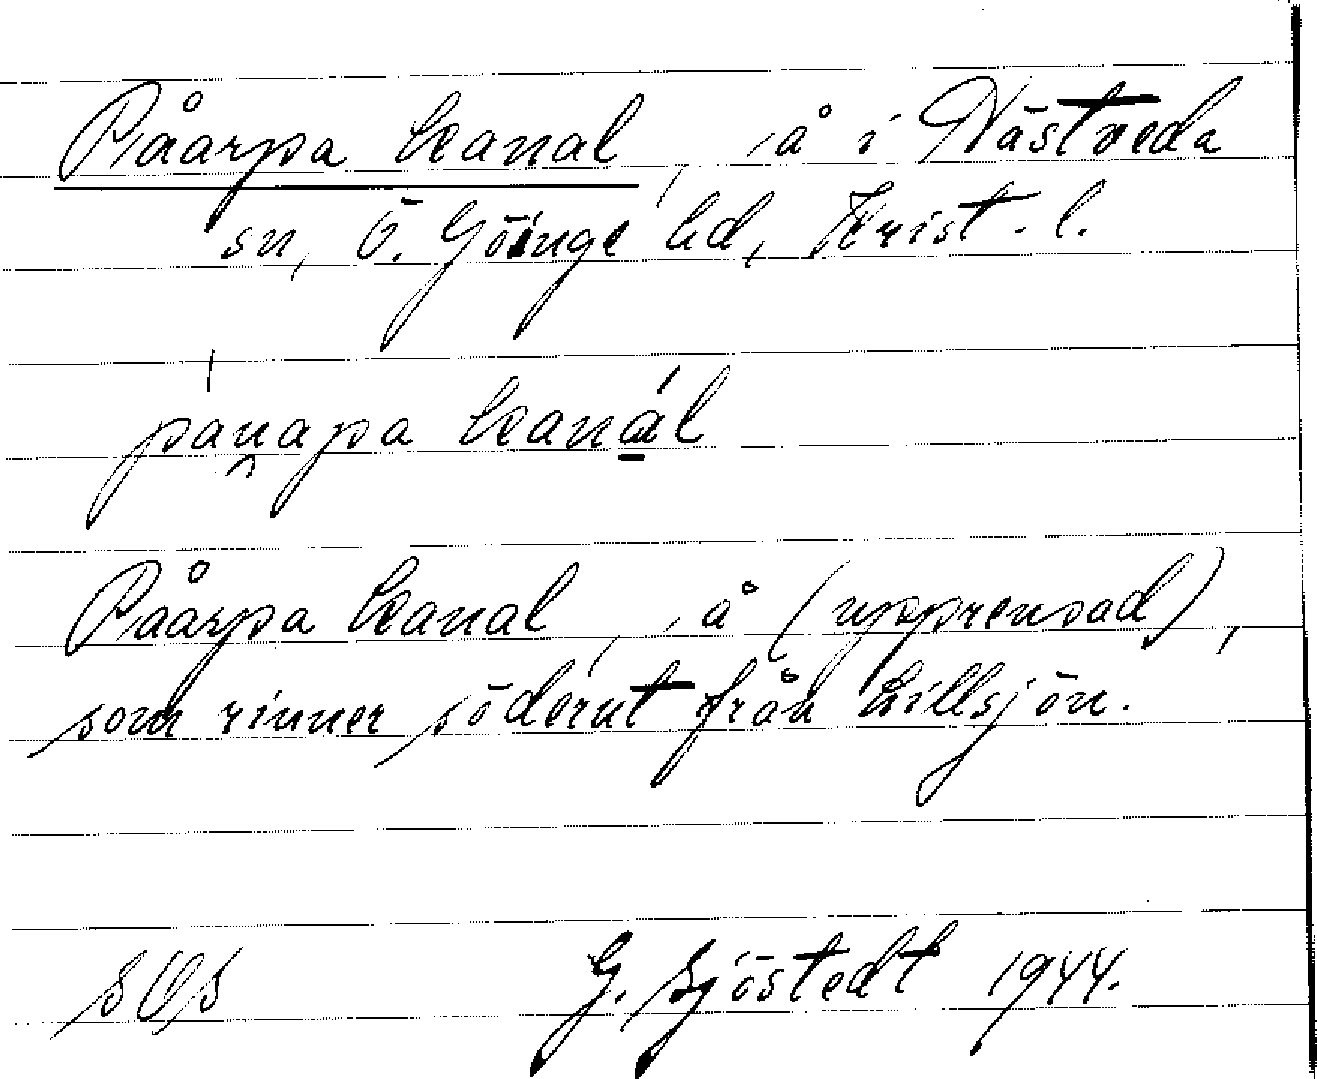 Påarpa kanal, å i Nästveda
sn, Ö. Göinge hd, Krist. l.
pánapa kanál
Påarpa kanal, å (upprensad),
som rinner söderut från Lillsjön.
G. Sjöstedt 1944.